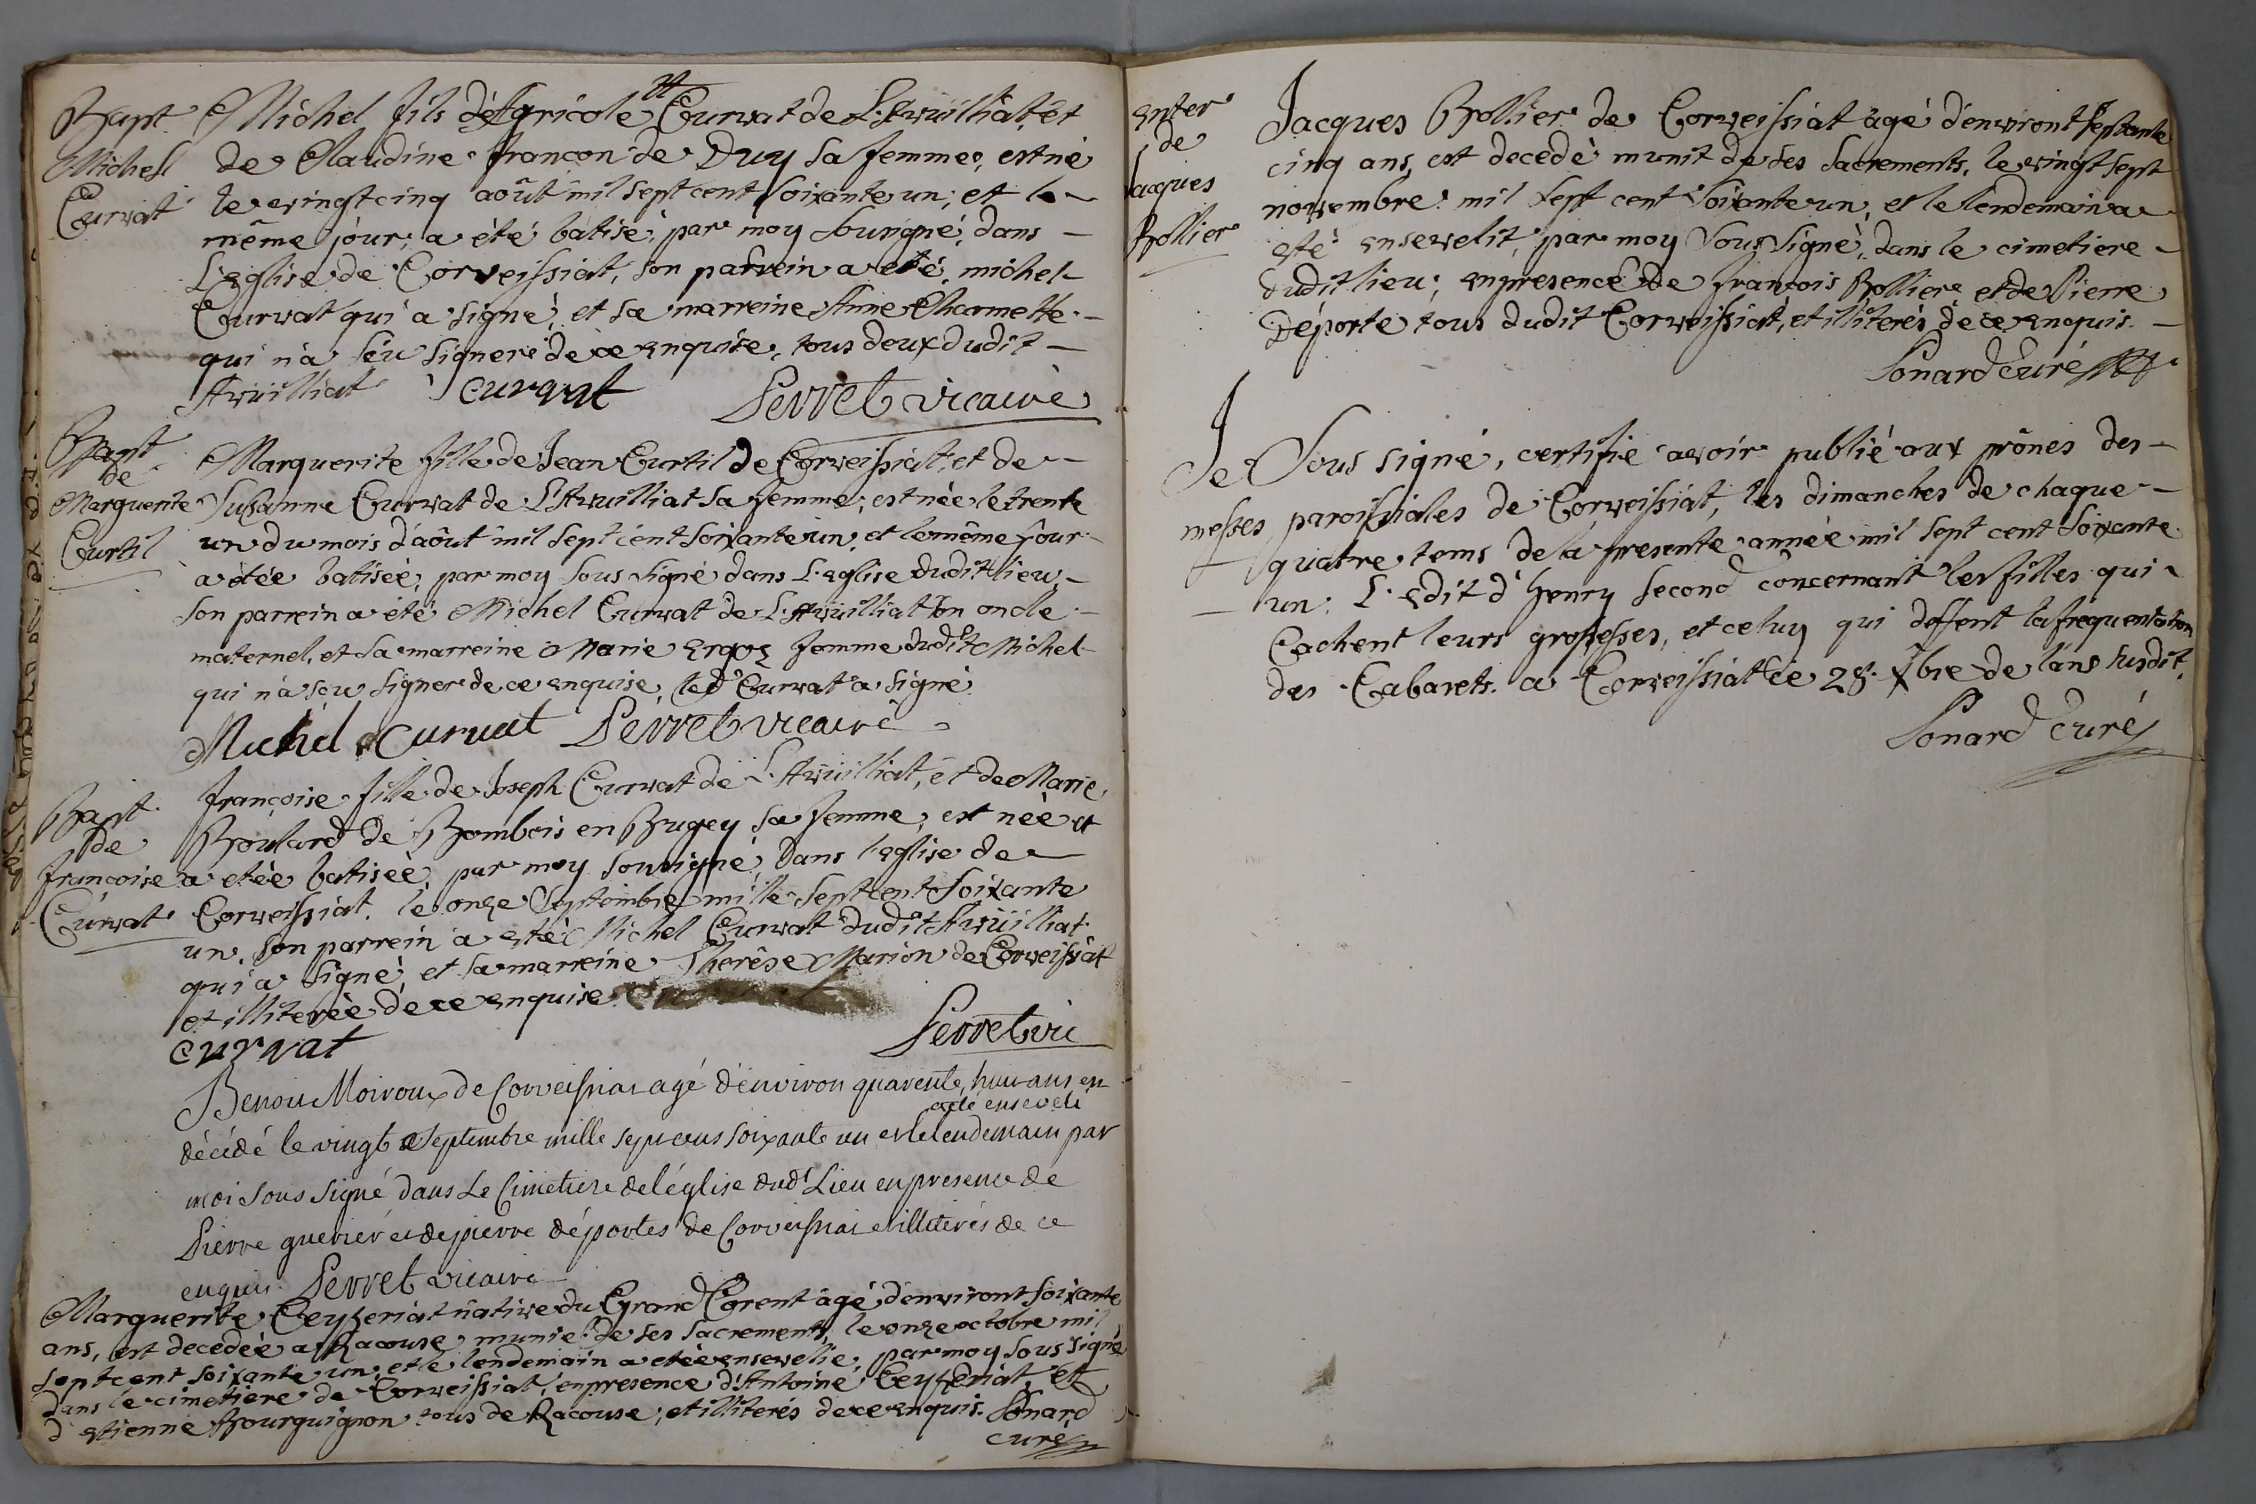 Bapt.
Michel
Curvat
Michel fils d'Agricole Curvat de L'Avuilliat, et
de Claudine françon de Duy sa femme, est né
le vingt cinq aoüt mil sept cent soixante un; et le
même jour, a été batisé, par moy sousigné, dans
L'eglise de Corveissiat, son parrein a eté michel
Curvat qui a signé, et sa marreine Anne Charmette
qui n'a sçu signer de ce enquise, tous deux dudit
Avuilliat curvat Perret vicaire
Bapt
de
Marguerite
Curtil
Marguerite fille de Jean Curtil de Corveissiat, et de
Susanne Curvat de L'Avuilliat sa femme, est née le trente
un du mois d'aôut mil sept cent soixante un, et le même jour
a étée batiseé, par moy sous signé dans L'eglise dudit lieu,
son parrein a été Michel Curvat de L'Avuilliat son oncle
maternel, et sa marreine Marie femme dudit Michel
qui n'a sçu signer de ce enquise, led Curvat a signé.
Michel Curvat Perret vicaire
Bapt.
de
françoise
Curvat
françoise fille de Joseph Curvat de L'Avuilliat, et de Marie
Boulard de Bombois en Bugey sa femme, est neè et
a etée batiseè, par moy sousigné, dans l'eglise de
Corveissiat. le onze Septembre mille sept cent soixante
un, son parrein a eté Michel Curvat dudit Avuilliat
qui a signé, et sa marreine Therèse Marion de Corveissiat
et illitereè de ce enquise
curvat Perret vic
Benoit Moiroux de Corveissiat agé d'environ quarente huit ans est
a été enseveli
décédé le vingt septembre mille sept cens soixante un et le lendemain par
moi sous signé dans Le Cimetiere de l'église dud Lieu en presence de
Pierre guerier et de pierre déportes de Corveissiat et illiterés de ce
enquis. Perret vicaire
Marguerite Ceyzeriat native du Grand Corent agé d'environt soixante
ans, est decedeè a Racouse, munie de ses sacrements, le onze octobre mil
sept cent soixante un; et le lendemain a eteé ensevelie, par moy sous signé
dans le cimetiere de Corveissiat, en presence d'Antoine Ceyzeriat, et
d'estienne Bourguignon tous de Racouse, et illiterés de ce enquis. Ponard
curé
enter
de
Jacques
Bollier
Jacques Bollier de Corveissiat agé d'environt septante
cinq ans, est decedé munit de ses sacrements, le vingt sept
novembre mil sept cent soixante un, et le lendemain a
eté ensevelit, par moy sous signé, dans le cimetiere
dudit lieu; en presence de françois Bollier et de Pierre
Déporte tous dudit Corveissiat, et illiterés de ce enquis.
Ponard curé
Je Sous signé, certifie avoir publié aux prônes des
messes paroissiales de Corveissiat, les dimanches de chaque
quatre tems de la presente année mil sept cent soixante
un. L'edit d'henry second concernant les filles qui
cachent leurs grossesses, et celuy qui deffent la frequentation
des Cabarets. a Corveissiat ce 28. Xbre de l'ans susdit,
Ponard Curé